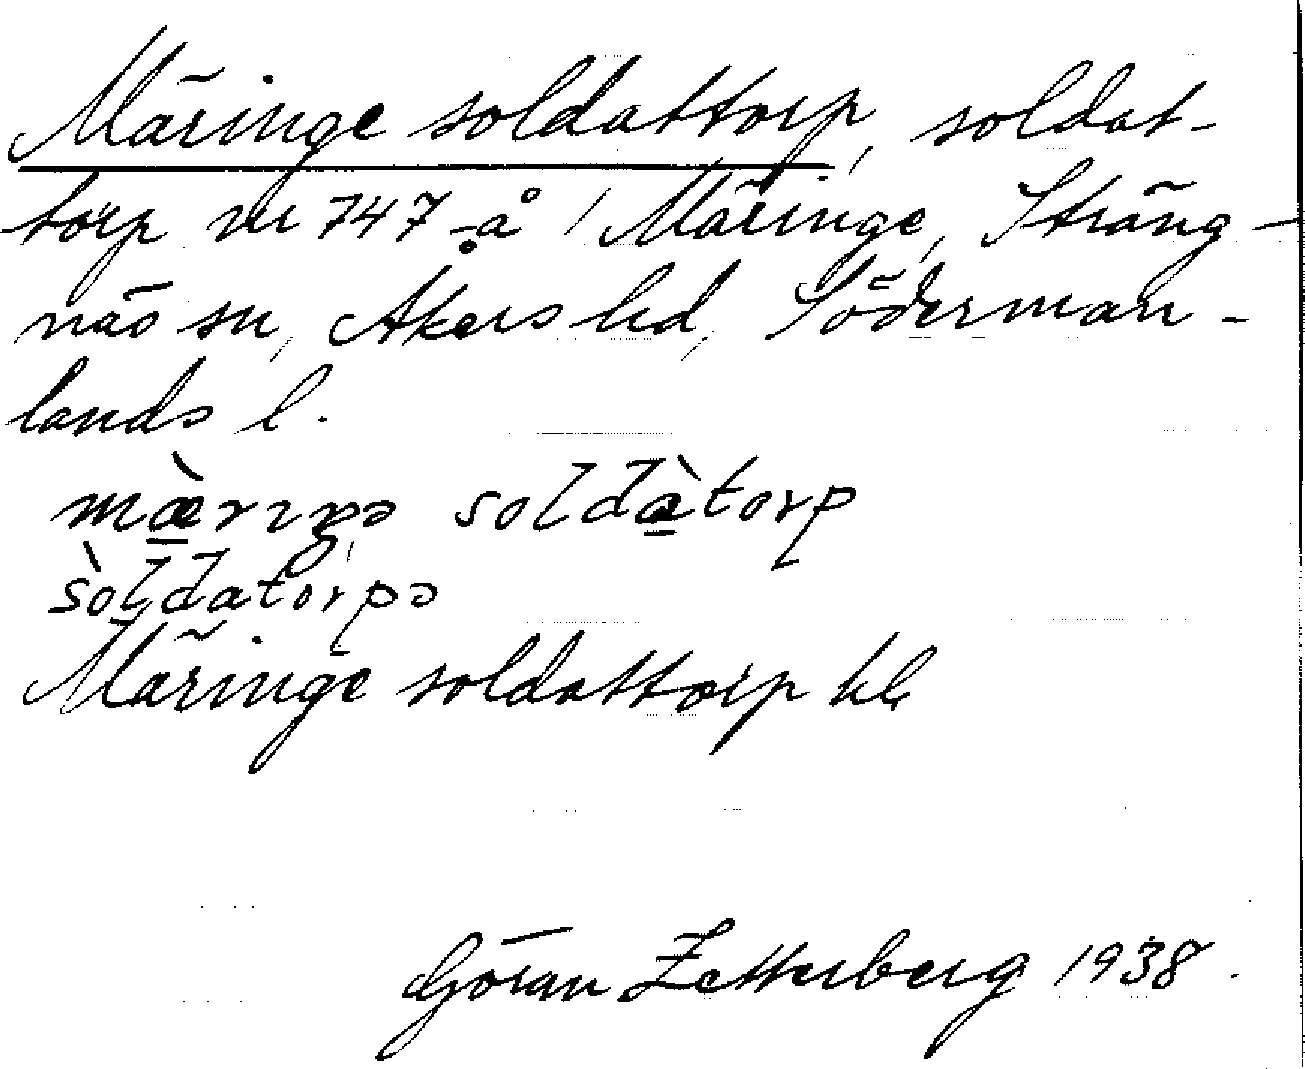 Märinge soldattorp, soldat-
torp nr 747 å 1 Märinge, Sträng-
näs sn, Åkers hd, Söderman-
lands l.
mæ̀rıŋə soldàtorp
sòldatorpə
Märinge soldattorp hb
Göran Zetterberg 1938.